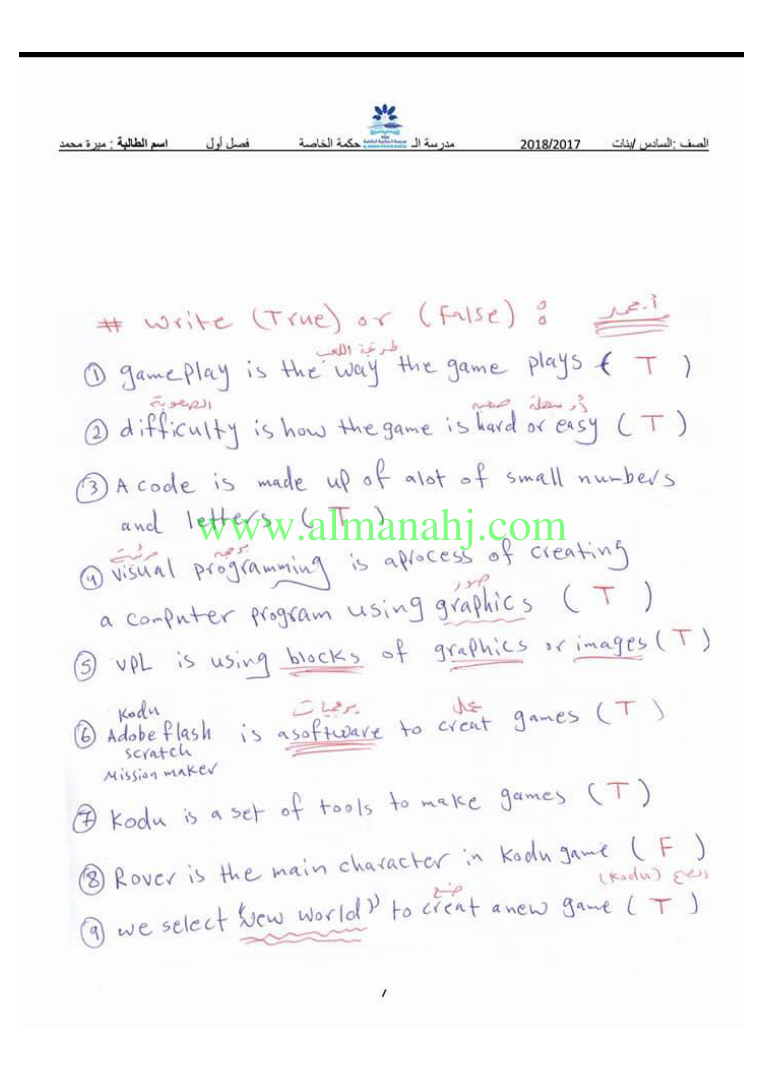 الصف :السادس /بنات 2018/2017 مدرسة الـ حكمة الخاصة فصل أول اسم الطالبة : ميرة محمد
# write (True) or (False) :
طريقة اللعب
① gameplay is the way the game plays ( T )
الصعوبة صعبه أو سهلة
② difficulty is how the game is hard or easy ( T )
③ A code is made up of alot of small numbers
and letters ( T )
www.almanahj.com
مرئية برمجه
④ visual programming is aprocess of creating
صور
a computer program using graphics ( T )
⑤ VPL is using blocks of graphics or images ( T )
برمجيات عمل
⑥ Kodu
Adobe flash is asoftware to creat games ( T )
scratch
Mission maker
⑦ Kodu is a set of tools to make games ( T )
⑧ Rover is the main character in Kodu game ( F )
(Kodu)
صنع
⑨ we select "New world" to creat anew game ( T )
/